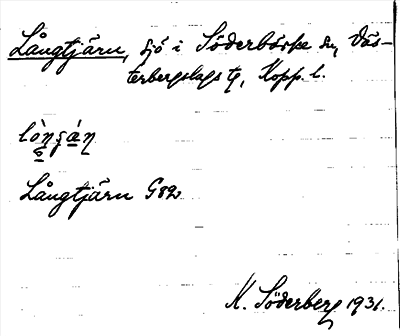 Långtjärn, sjö i Söderbärke sn, Väs-
terbergslags tg, Kopp. l.
Långtjärn G82
K. Söderberg 1931.